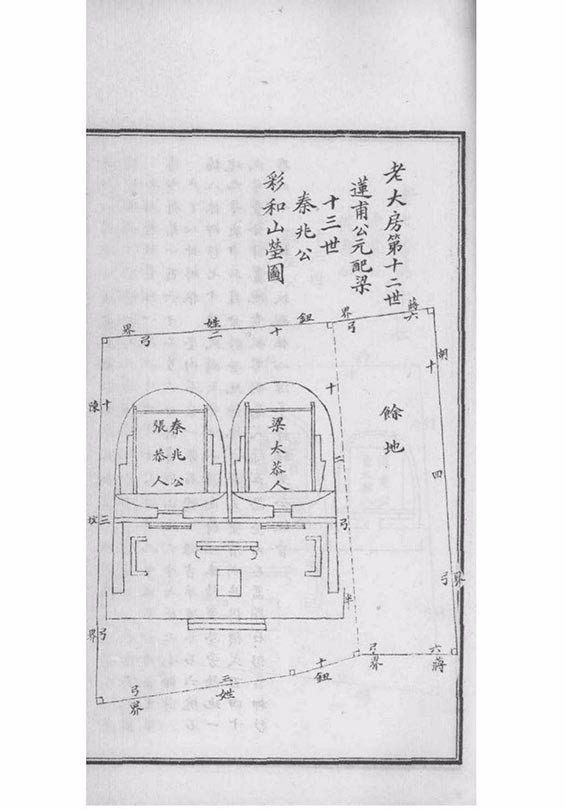 老大房第十二世
蓮甫公元配梁
十三世
秦兆公
彩和山塋圖
蔣六弓界
鈕十姓二弓界
胡十四弓界
餘地
十二弓
梁太恭人
秦兆公
張恭人
陳十
三弓界
六弓
蔣界
鈕十
姓三
弓界